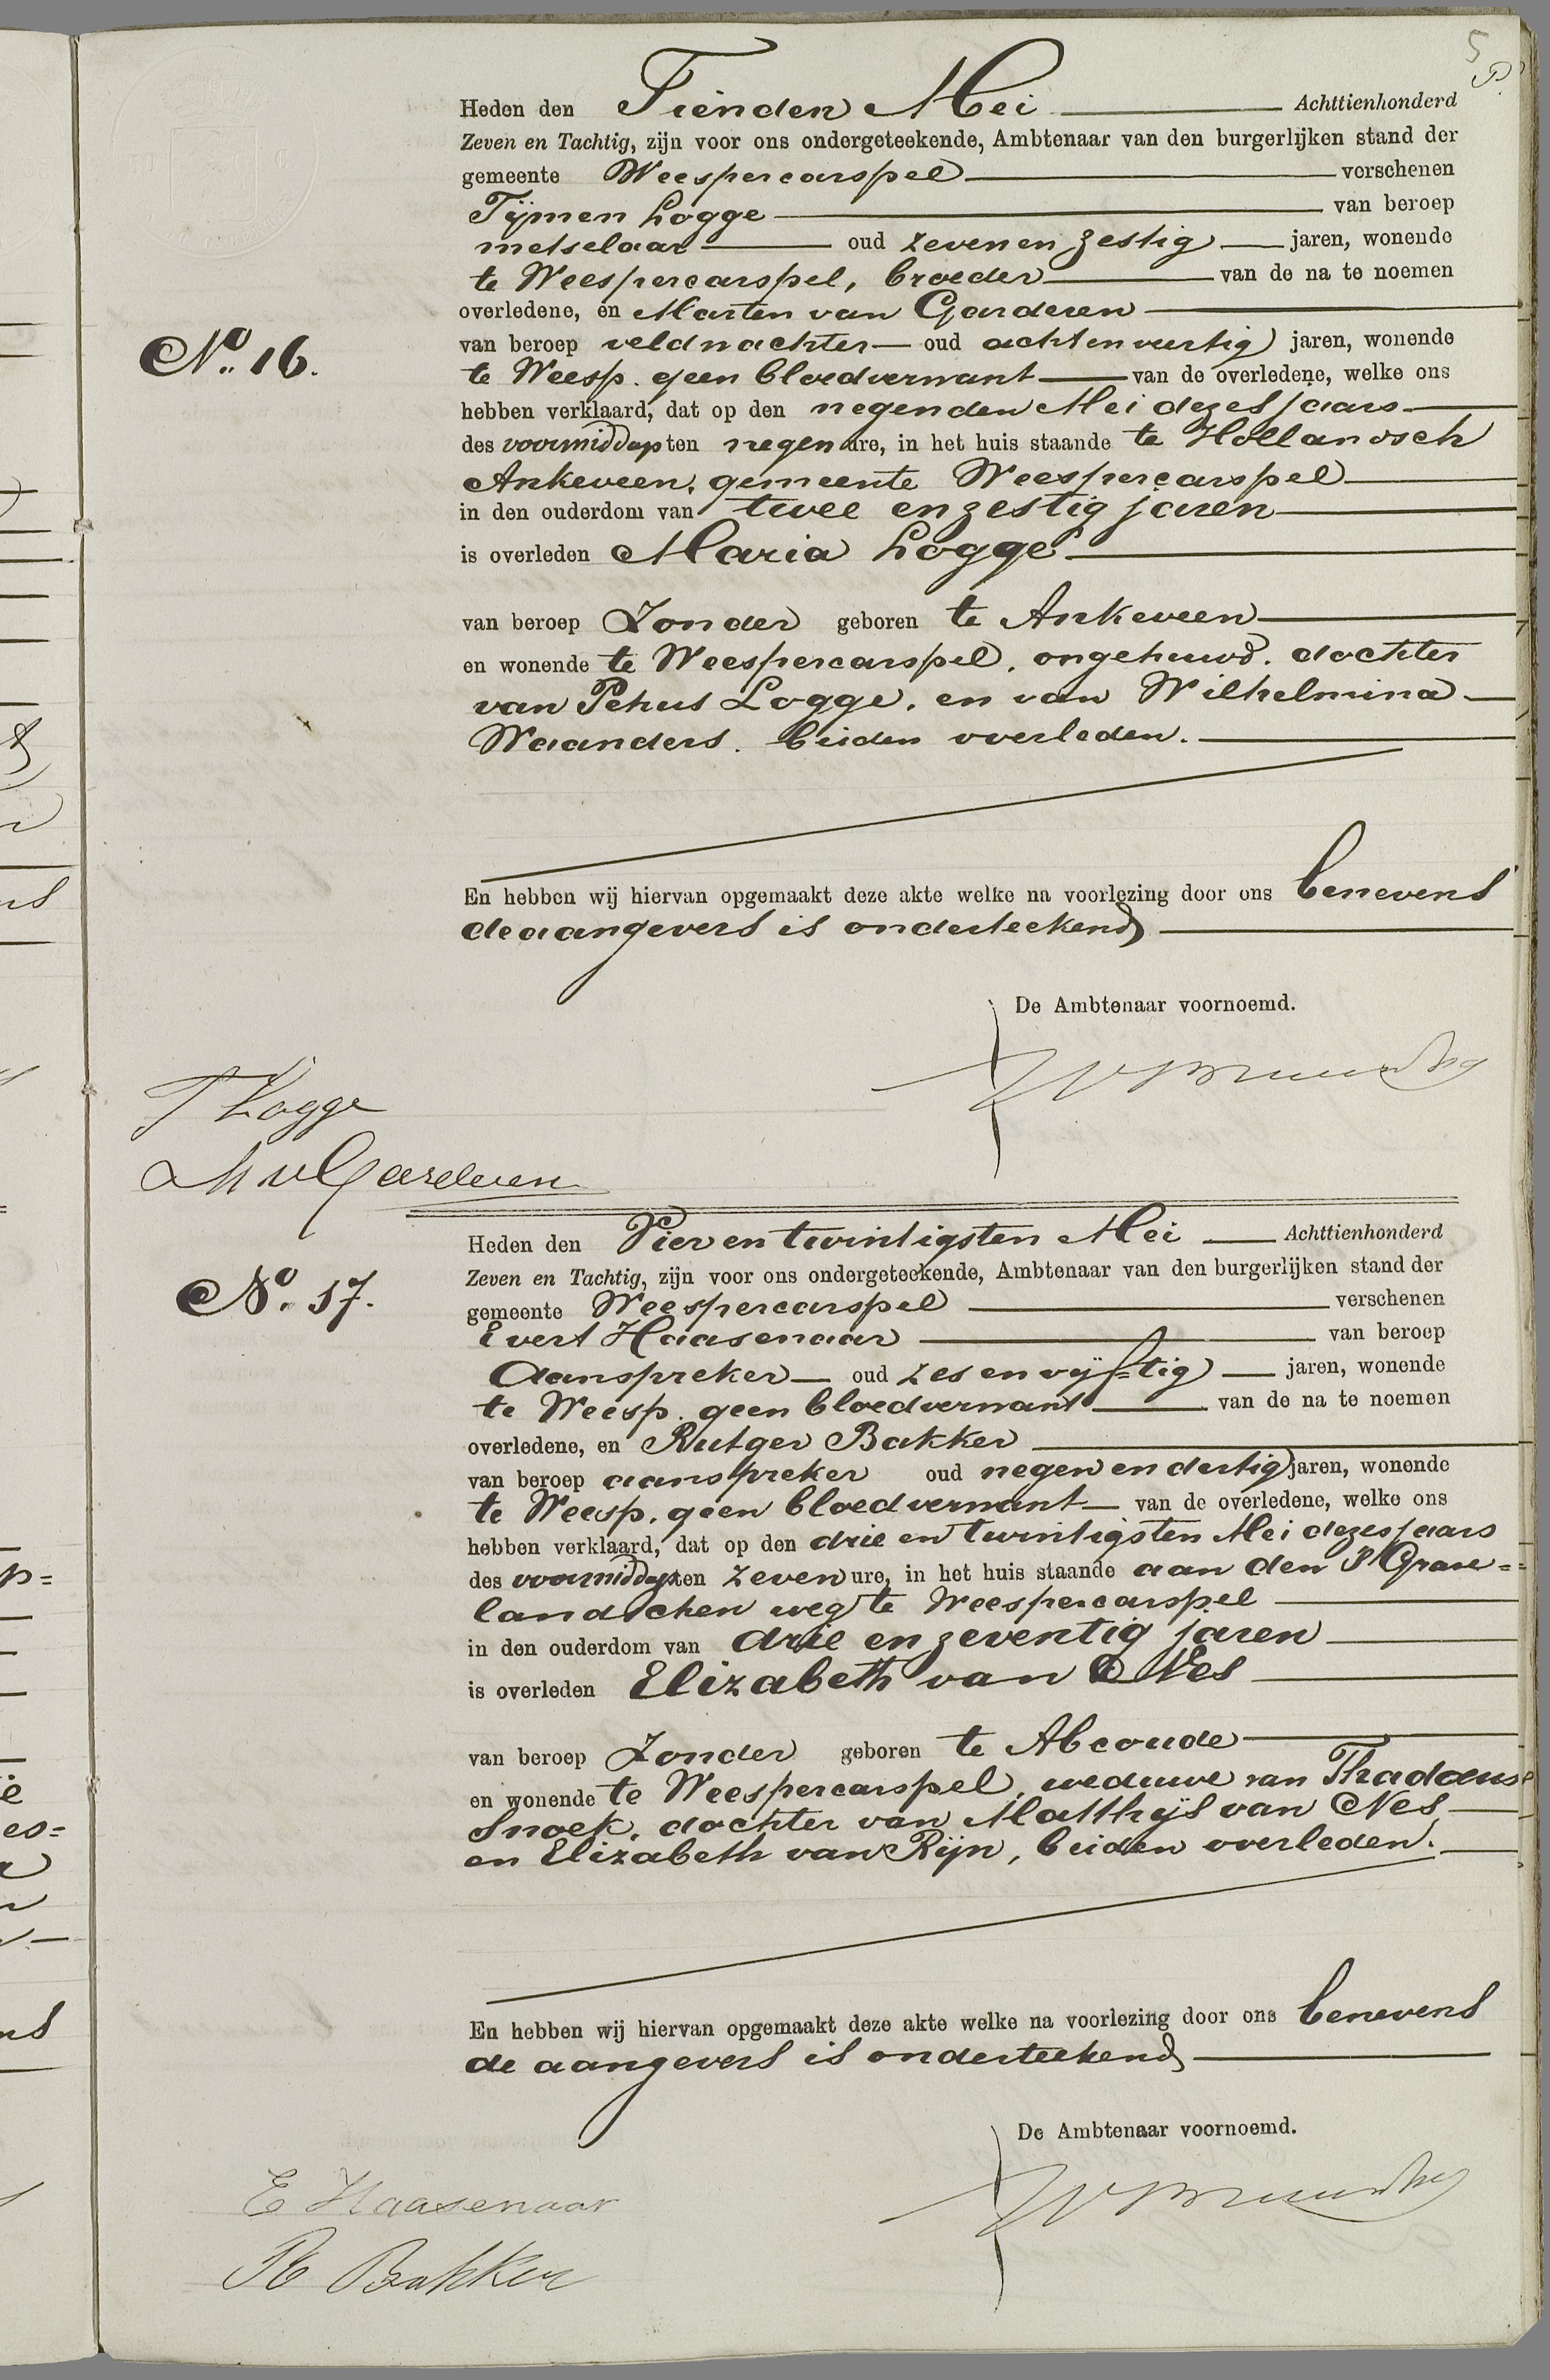 5
Heden den Tienden Mei Achttienhonderd
Zeven en Tachtig, zijn voor ons ondergeteekende, Ambtenaar van den burgerlijken stand der
gemeente Weespercarspel verschenen
Tijmen Logge van beroep
metselaar oud zeven en zestig jaren, wonende
te Weespercarspel, broeder van de na te noemen
overledene, en Marten van Garderen
No. 16.
van beroep veldwachter oud acht en veertig jaren, wonende
te Weesp. geen bloedverwant van de overledene, welke ons
hebben verklaard, dat op den negenden Mei dezes jaars
des voormiddags ten negen ure, in het huis staande te Hollandsch
Ankeveen, gemeente Weespercarspel
in den ouderdom van twee en zestig jaren
is overleden Maria Logge
van beroep Zonder geboren te Ankeveen
en wonende te Weespercarspel, ongehuwd. dochter
van Petrus Logge, en van Wilhelmina
Waanders. beiden overleden.
En hebben wij hiervan opgemaakt deze akte welke na voorlezing door ons benevens
de aangevers is onderteekend
De Ambtenaar voornoemd.
T Logge
M v Garderen
Heden den Vier en twintigsten Mei Achttienhonderd
No. 17.
Zeven en Tachtig, zijn voor ons ondergeteekende, Ambtenaar van den burgerlijken stand der
gemeente Weespercarspel verschenen
Evert Haasenaar van beroep
Aanspreker oud zes en vijftig jaren, wonende
te Weesp. geen bloedverwant van de na te noemen
overledene, en Rutger Bakker
van beroep aanspreker oud negen en dertig jaren, wonende
te Weesp. geen bloedverwant van de overledene, welke ons
hebben verklaard, dat op den drie en twintigsten Mei dezes jaars
des voormiddags ten zeven ure, in het huis staande aan den 's Grave=
landschen weg te Weespercarspel
in den ouderdom van drie en zeventig jaren
is overleden Elizabeth van Nes
van beroep Zonder geboren te Abcoude
en wonende te Weespercarspel, weduwe van Thadaeus
Snoek, dochter van Matthijs van Nes
en Elizabeth van Rijn, beiden overleden.
En hebben wij hiervan opgemaakt deze akte welke na voorlezing door ons benevens
de aangevers is onderteekend
De Ambtenaar voornoemd.
E Haasenaar
R Bakker